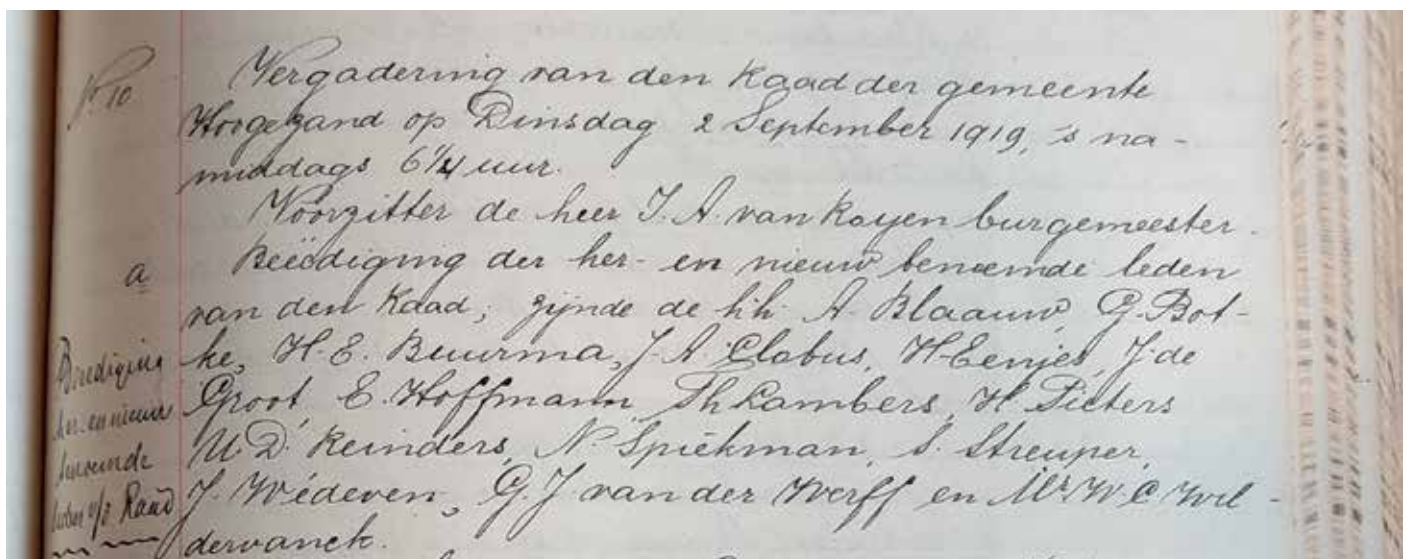 No. 10
Vergadering van den Raad der gemeente
Hoogezand op Dinsdag 2 September 1919, 's na-
middags 6 1/4 uur.
Voorzitter de heer J. A. van Royen burgemeester.
a
Beëediging der her- en nieuw benoemde leden
van den Raad; zijnde de hh. A. Blaauw, G. Bot-
ke, H. E. Buurma, J. A. Clobus, H. Eenjes, J. de
Groot, E. Hoffmann, Th Lambers, H Pieters
U. D. Reinders, N. Spiekman, S. Streuper,
J. Wédeven, G. J. van der Werff en Mr. W. C. Wil-
dervanck.
Beëediging
her- en nieuw
benoemde
leden v/d Raad